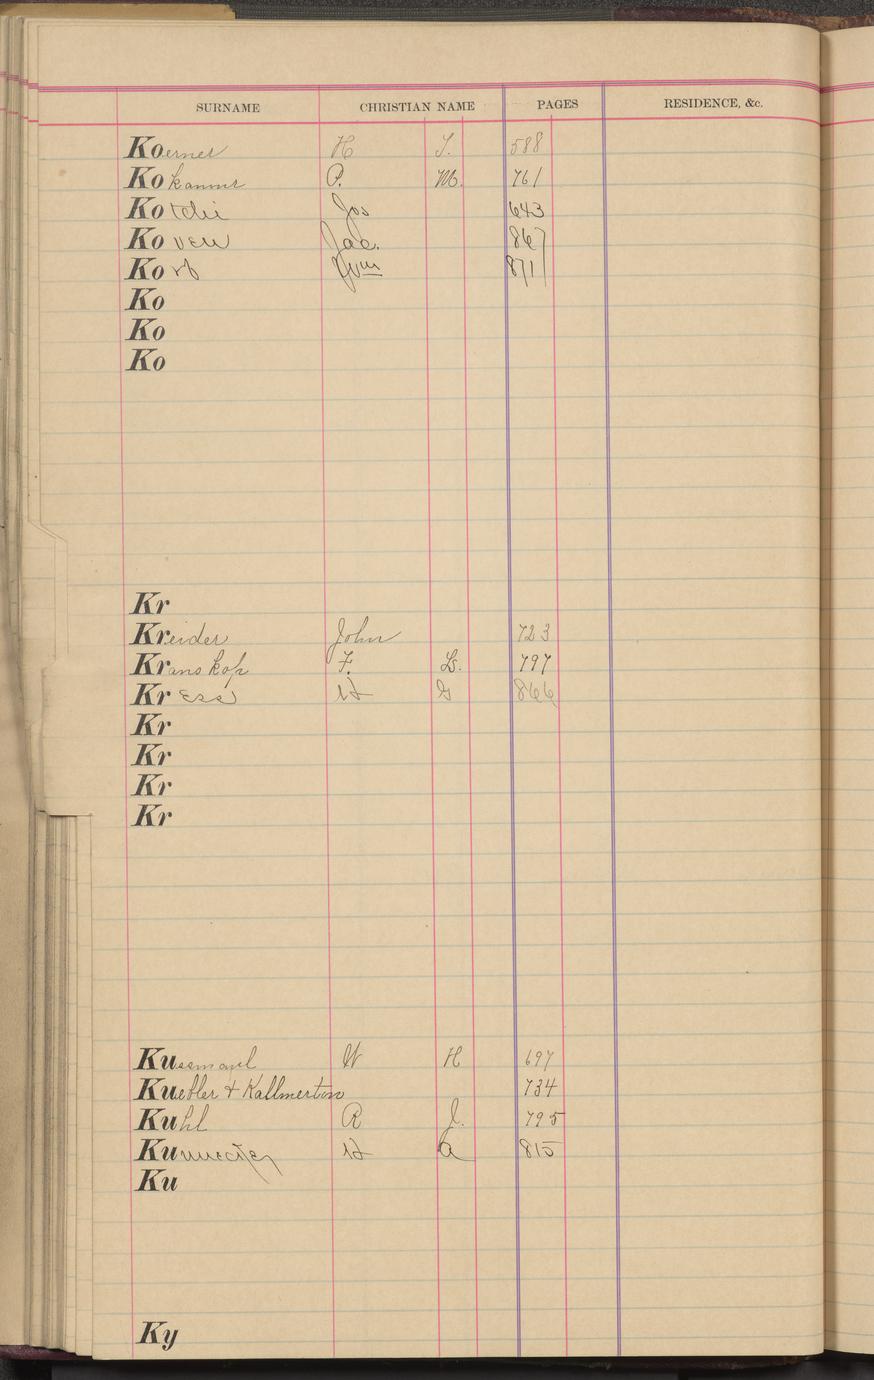 SURNAME CHRISTIAN NAME PAGES RESIDENCE, &c.
Koerner H 588
Ko P. M. 761
Ko Jos 643
Koven Jac. 867
Ko Wm 871
Ko
Ko
Ko
Kr
Kreider John 723
Kranskop F. 797
Kress H G 866
Kr
Kr
Kr
Kr
Ku W H 697
Kuebler & Kallmerton 734
Kuhl R J. 795
Ku H A 815
Ku
Ky